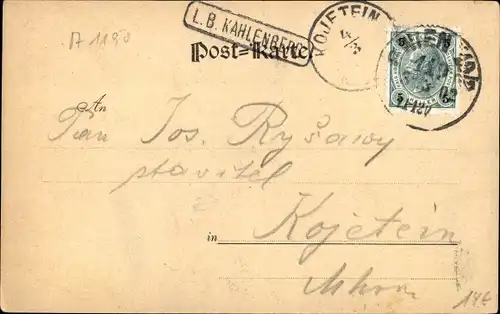 A 1190
L. B. KAHLENBERG
Post=Karte
KOJETEIN
4/3
WIEN
An
Pan Jos. Ryšavy
stavitel
in Kojetein
14€